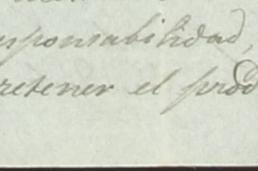 responsabilidad,
retener el prod